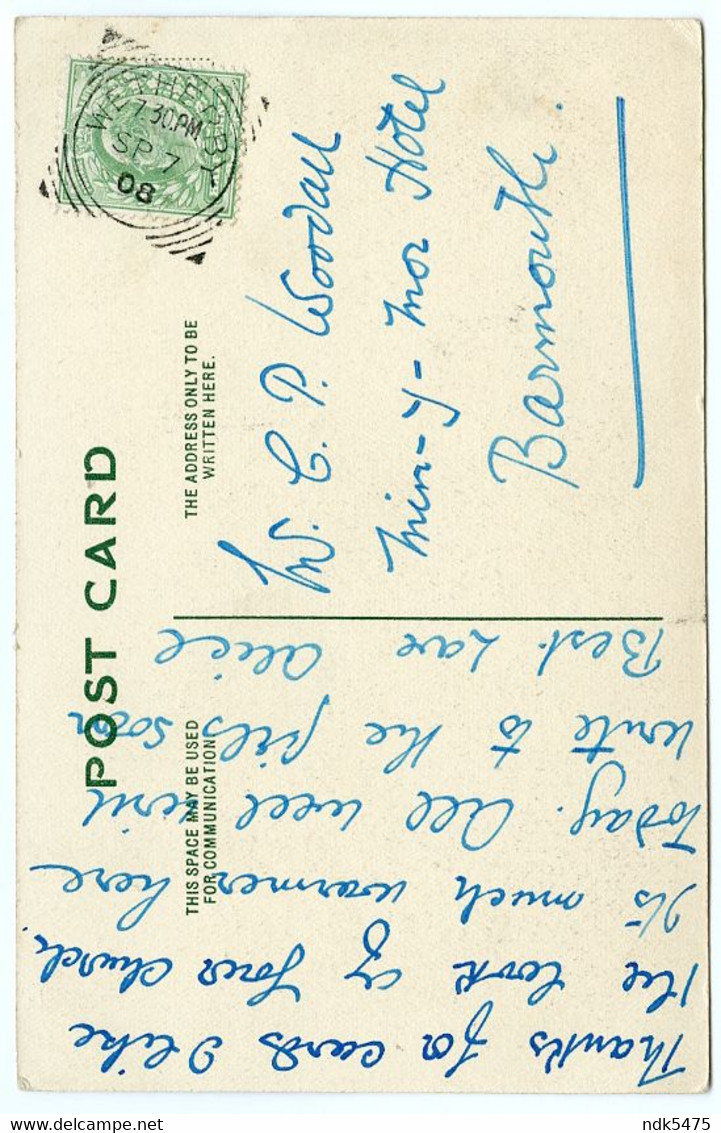 POST CARD
THIS SPACE MAY BE USED
FOR COMMUNICATION
THE ADDRESS ONLY TO BE
WRITTEN HERE.
WETHERBY
7.30PM
SP 7
08
Thanks for cards I like
the look of your church.
It's much warmer here
Today. All well will
write to the girls soon
Best Love Alice
C. P. Woodall
Min-y-mor Hotel
Barmouth.
ndk5475